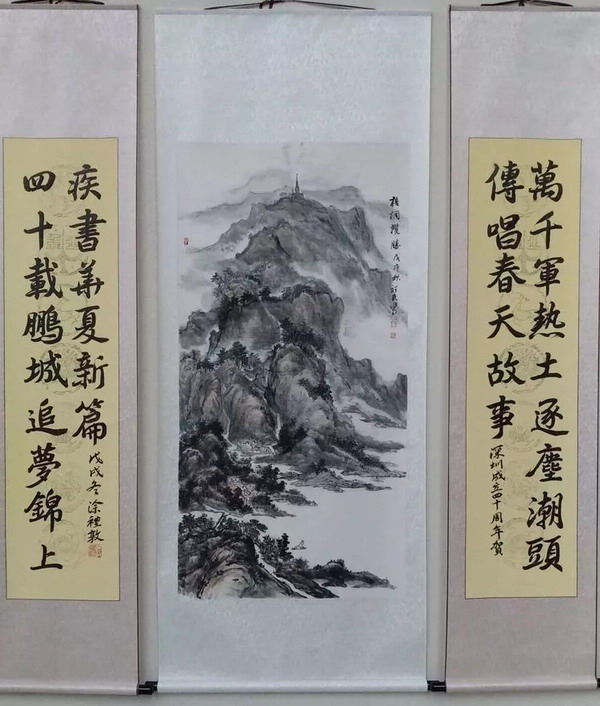 萬千軍熱土逐塵潮頭
傳唱春天故事
深圳成立四十周年賀
梧桐攬勝戊戌秋
四十載鵬城追夢錦上
疾書華夏新篇
戊戌冬涂